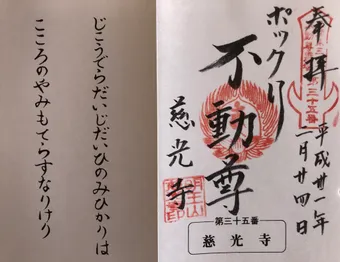 奉拝
平成卅一年
二月廿四日
ポックリ
不動尊
慈光寺
第三十五番
慈光寺
じこうでらだいじだいひのみひかりは
こころのやみもてらすなりけり